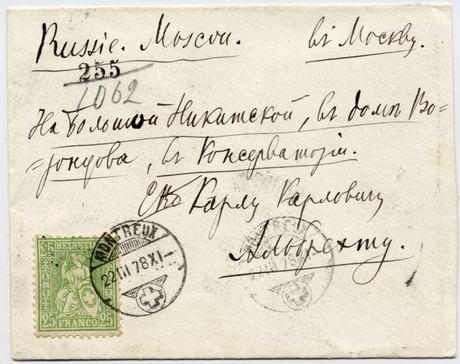 Russie. Moscou. въ Москву.
255
1062
На Большой Никитской, въ домѣ Во-
-ронцова, въ Консерваторіи.
ЕВб Карлу Карловичу
Альбрехту.
MONTREUX
22 III 78 XI
25 HELVETIA 25
25 FRANCO 25